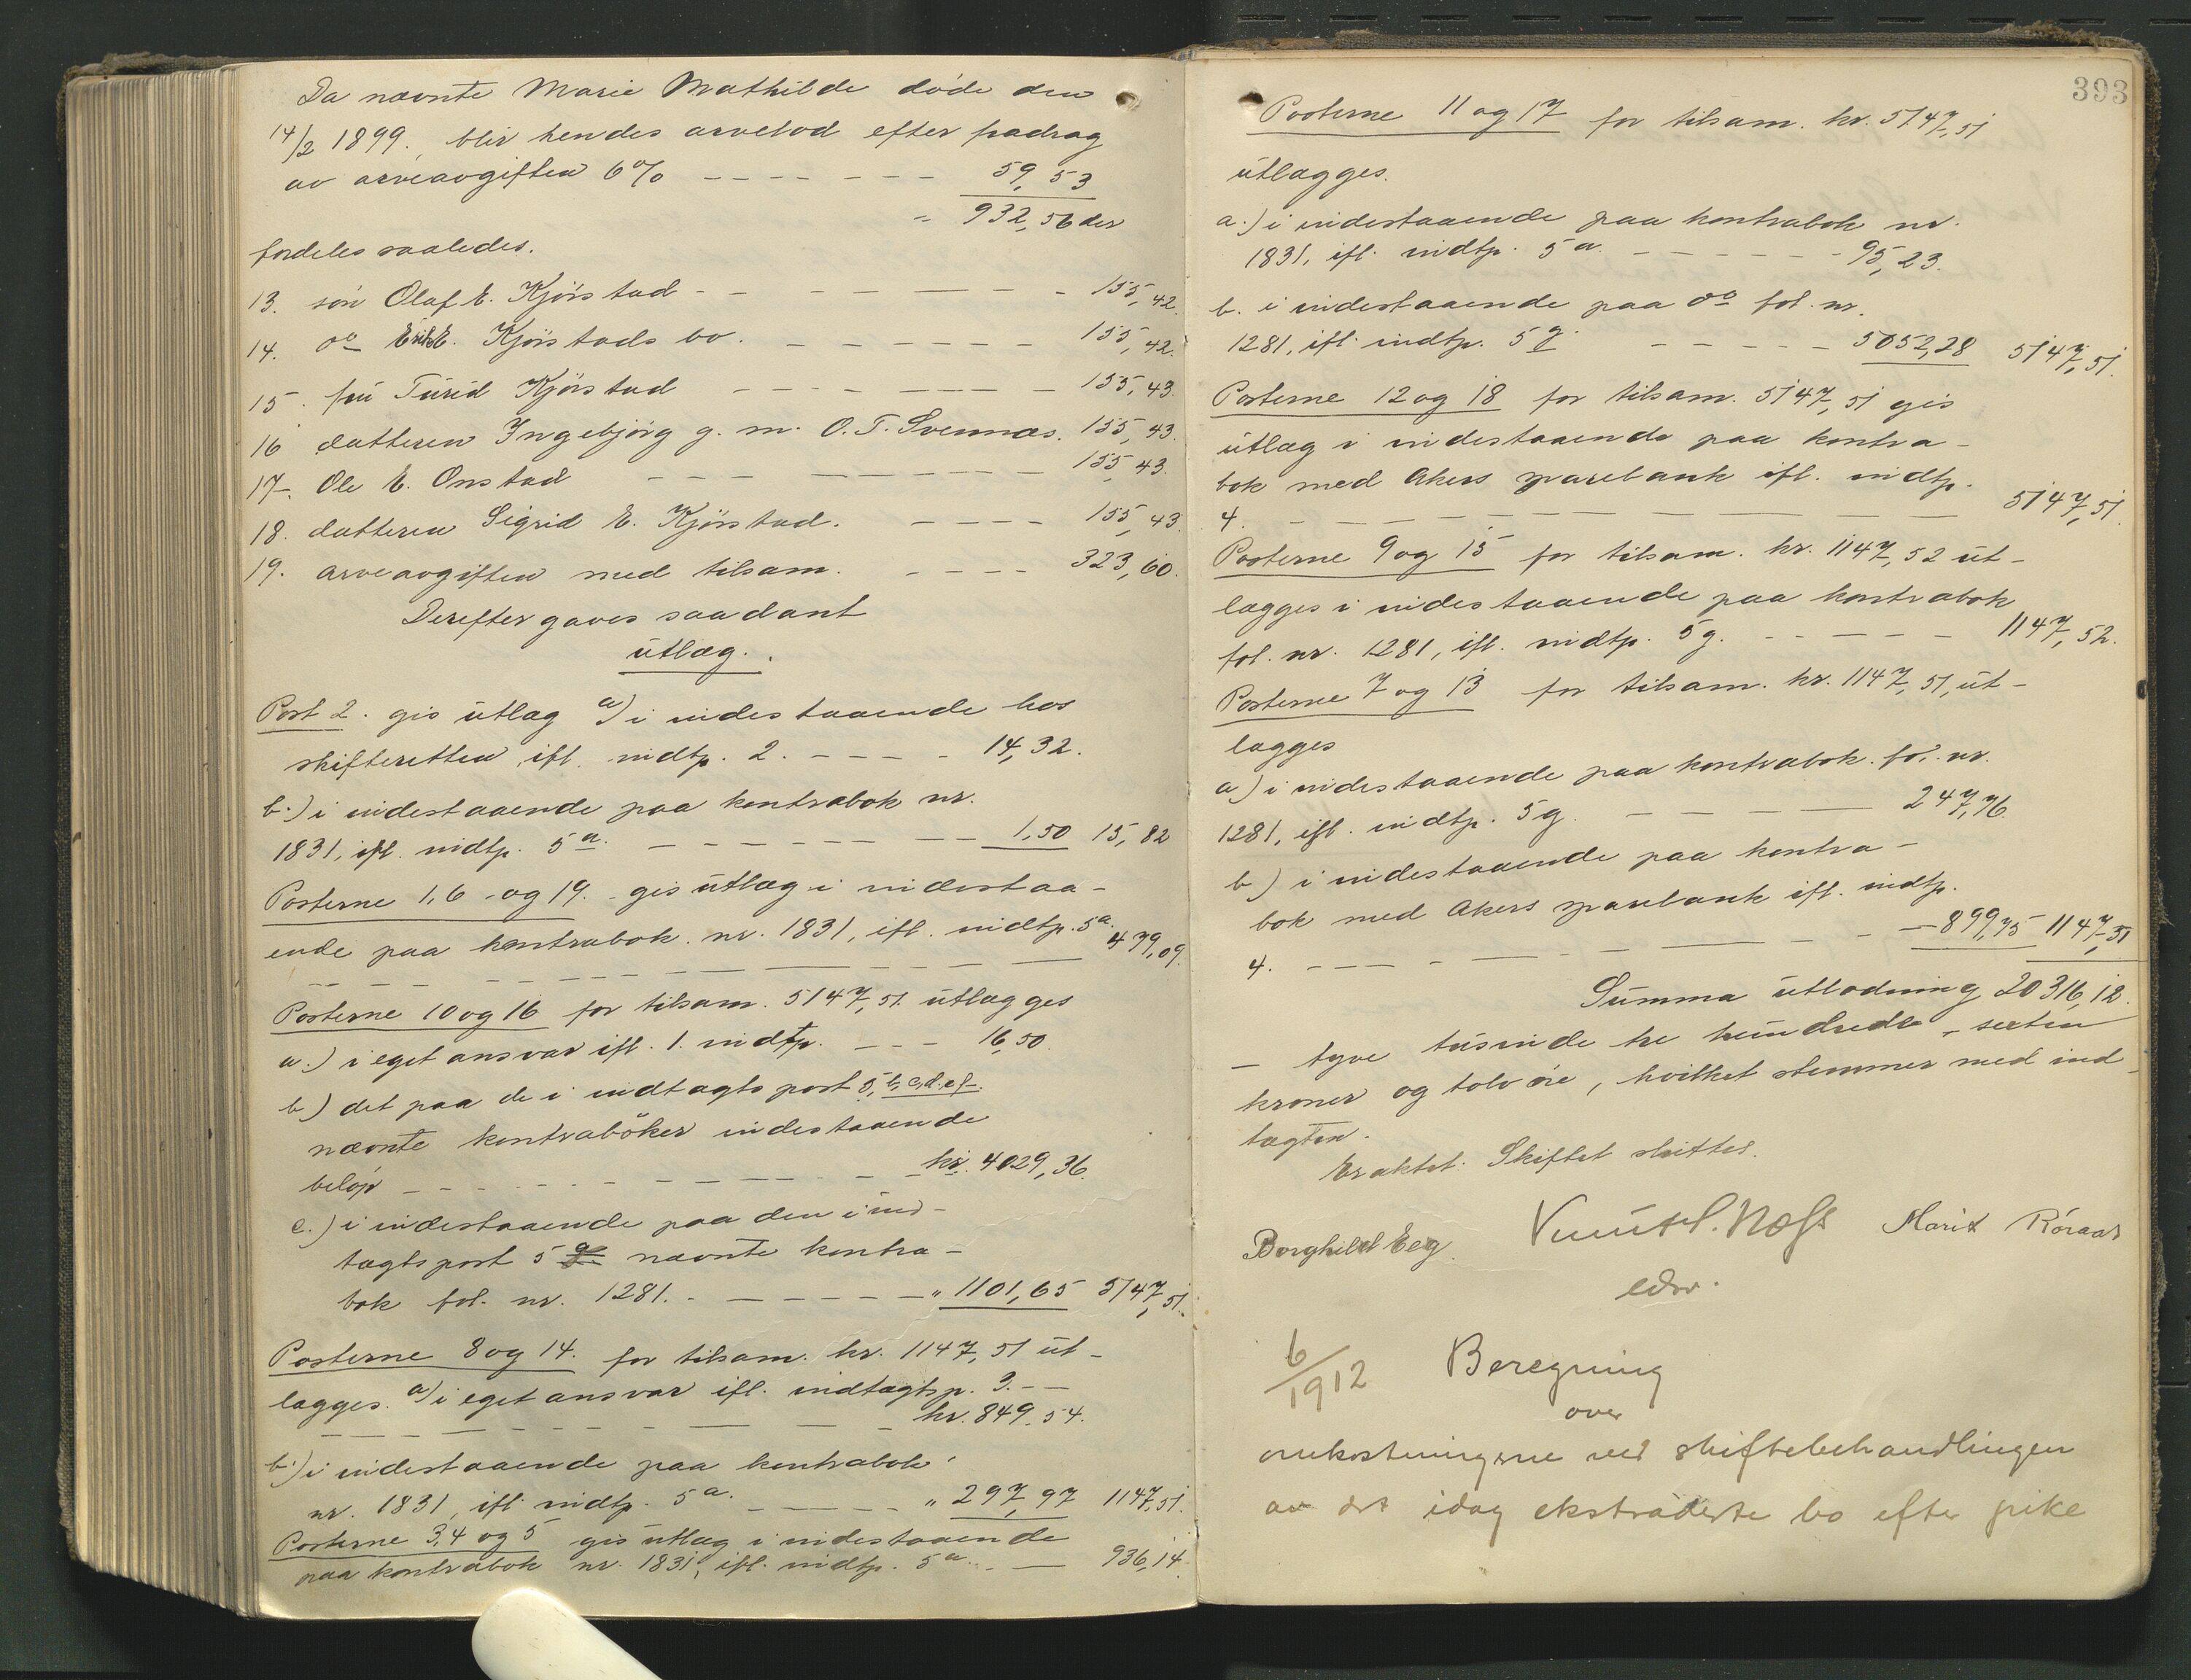 Da nævnte Marie Mathilde døde den
14/2 1899, blir hendes arvelod efter fradrag
av arveavgiften 6% - - - - - - - 59,53
" 932,56 der
fordeles saaledes.
13. søn Olaf E. Kjörstad - - - - - - - 155,42.
14. do Erik E. Kjörstads bo. - - - - - - 155,42.
15. frü Türid Kjörstad - - - - - - - 155,43.
16 datteren Ingebjörg g. m. O. T. Svennæs. 155,43.
17. Ole E. Onstad - - - - - - - 155,43.
18. datteren Sigrid E. Kjörstad. - - - - 155,43.
19. arveavgiften med tilsam. - - - - 323,60.
Derefter gaves saadant
ütlæg.
Post 2. gis ütlæg a) i indestaaende hos
skifteretten, ifl. indtp. 2. - - - - 14,32.
b.) i indestaaende paa kontrabok nr.
1831, ifl. indtp. 5a. - - - - - - - - 1,50 15,82
Posterne 1,6 og 19. gis ütlæg i indestaa-
ende paa kontrabok. nr. 1831, ifl. indtp. 5a.
- - - - - - - - - - - 479,09.
Posterne 10 og 16 for tilsam. 5147,51. ütlægges
a.) i eget ansvar ifl. 1. indtp. - - - 16,50.
b) det paa de i indtægts post 5, b, c, d, e f.
nævnte kontraböker indestaaende
beløp - - - - - - - - - - kr. 4029,36.
c.) i indestaaende paa den i ind-
tægts post 5 g nævnte kontra-
bok fol. nr. 1281. - - - - - - " 1101,65 5147,51.
Posterne 8 og 14. for tilsam. kr. 1147,51 üt-
lægges. a) i eget ansvar ifl. indtægtsp. 3. - -
- - - - - - - - - - kr. 849,54.
b.) i indestaaende paa kontrabok
nr. 1831, ifl. indtp. 5a. - - - - - " 297,97 1147,51.
Posterne 3,4 og 5 gis ütlæg i indestaaende
paa kontrabok nr. 1831, ifl. indtp. 5a. - - 936,14.
393
Posterne 11 og 17 for tilsam. kr. 5147,51
ütlægges.
a.) i indestaaende paa kontrabok nr.
1831, ifl. indtp. 5a. - - - - - - - 95,23.
b. i indestaaende paa do fol. nr.
1281, ifl. indtp. 5g. - - - - - 5052,28 5147,51.
Posterne 12 og 18 for tilsam. 5147,51 gis
ütlæg i indestaaende paa kontra-
bok med Akers sparebank ifl. indtp.
4. - - - - - - - - - - 5147,51.
Posterne 9 og 15 for tilsam. kr. 1147,52 üt-
lægges i indestaaende paa kontrabok
fol. nr. 1281, ifl. indtp. 5g. - - - - - 1147,52.
Posterne 7 og 13 for tilsam. kr. 1147,51, üt-
lægges
a) i indestaaende paa kontrabok. fol. nr.
1281, ifl. indtp. 5g. - - - - - 247,76.
b) i indestaaende paa kontra-
bok med Akers sparebank ifl. indtp.
4. - - - - - - - - - 899,75 1147,51
Sümma ütlodning 20316,12.
- tyve tüsinde tre hündrede - sexten
kroner og tolv øre, hvilket stemmer med ind-
tægten.
Eraktet: Skiftet slüttes.
Borghild Eeg. Knüt H. Næss Marit Röraas
edsv.
6/1912 Beregning
over
omkostningerne ved skiftebehandlingen
av det idag ekstraderte bo efter pike